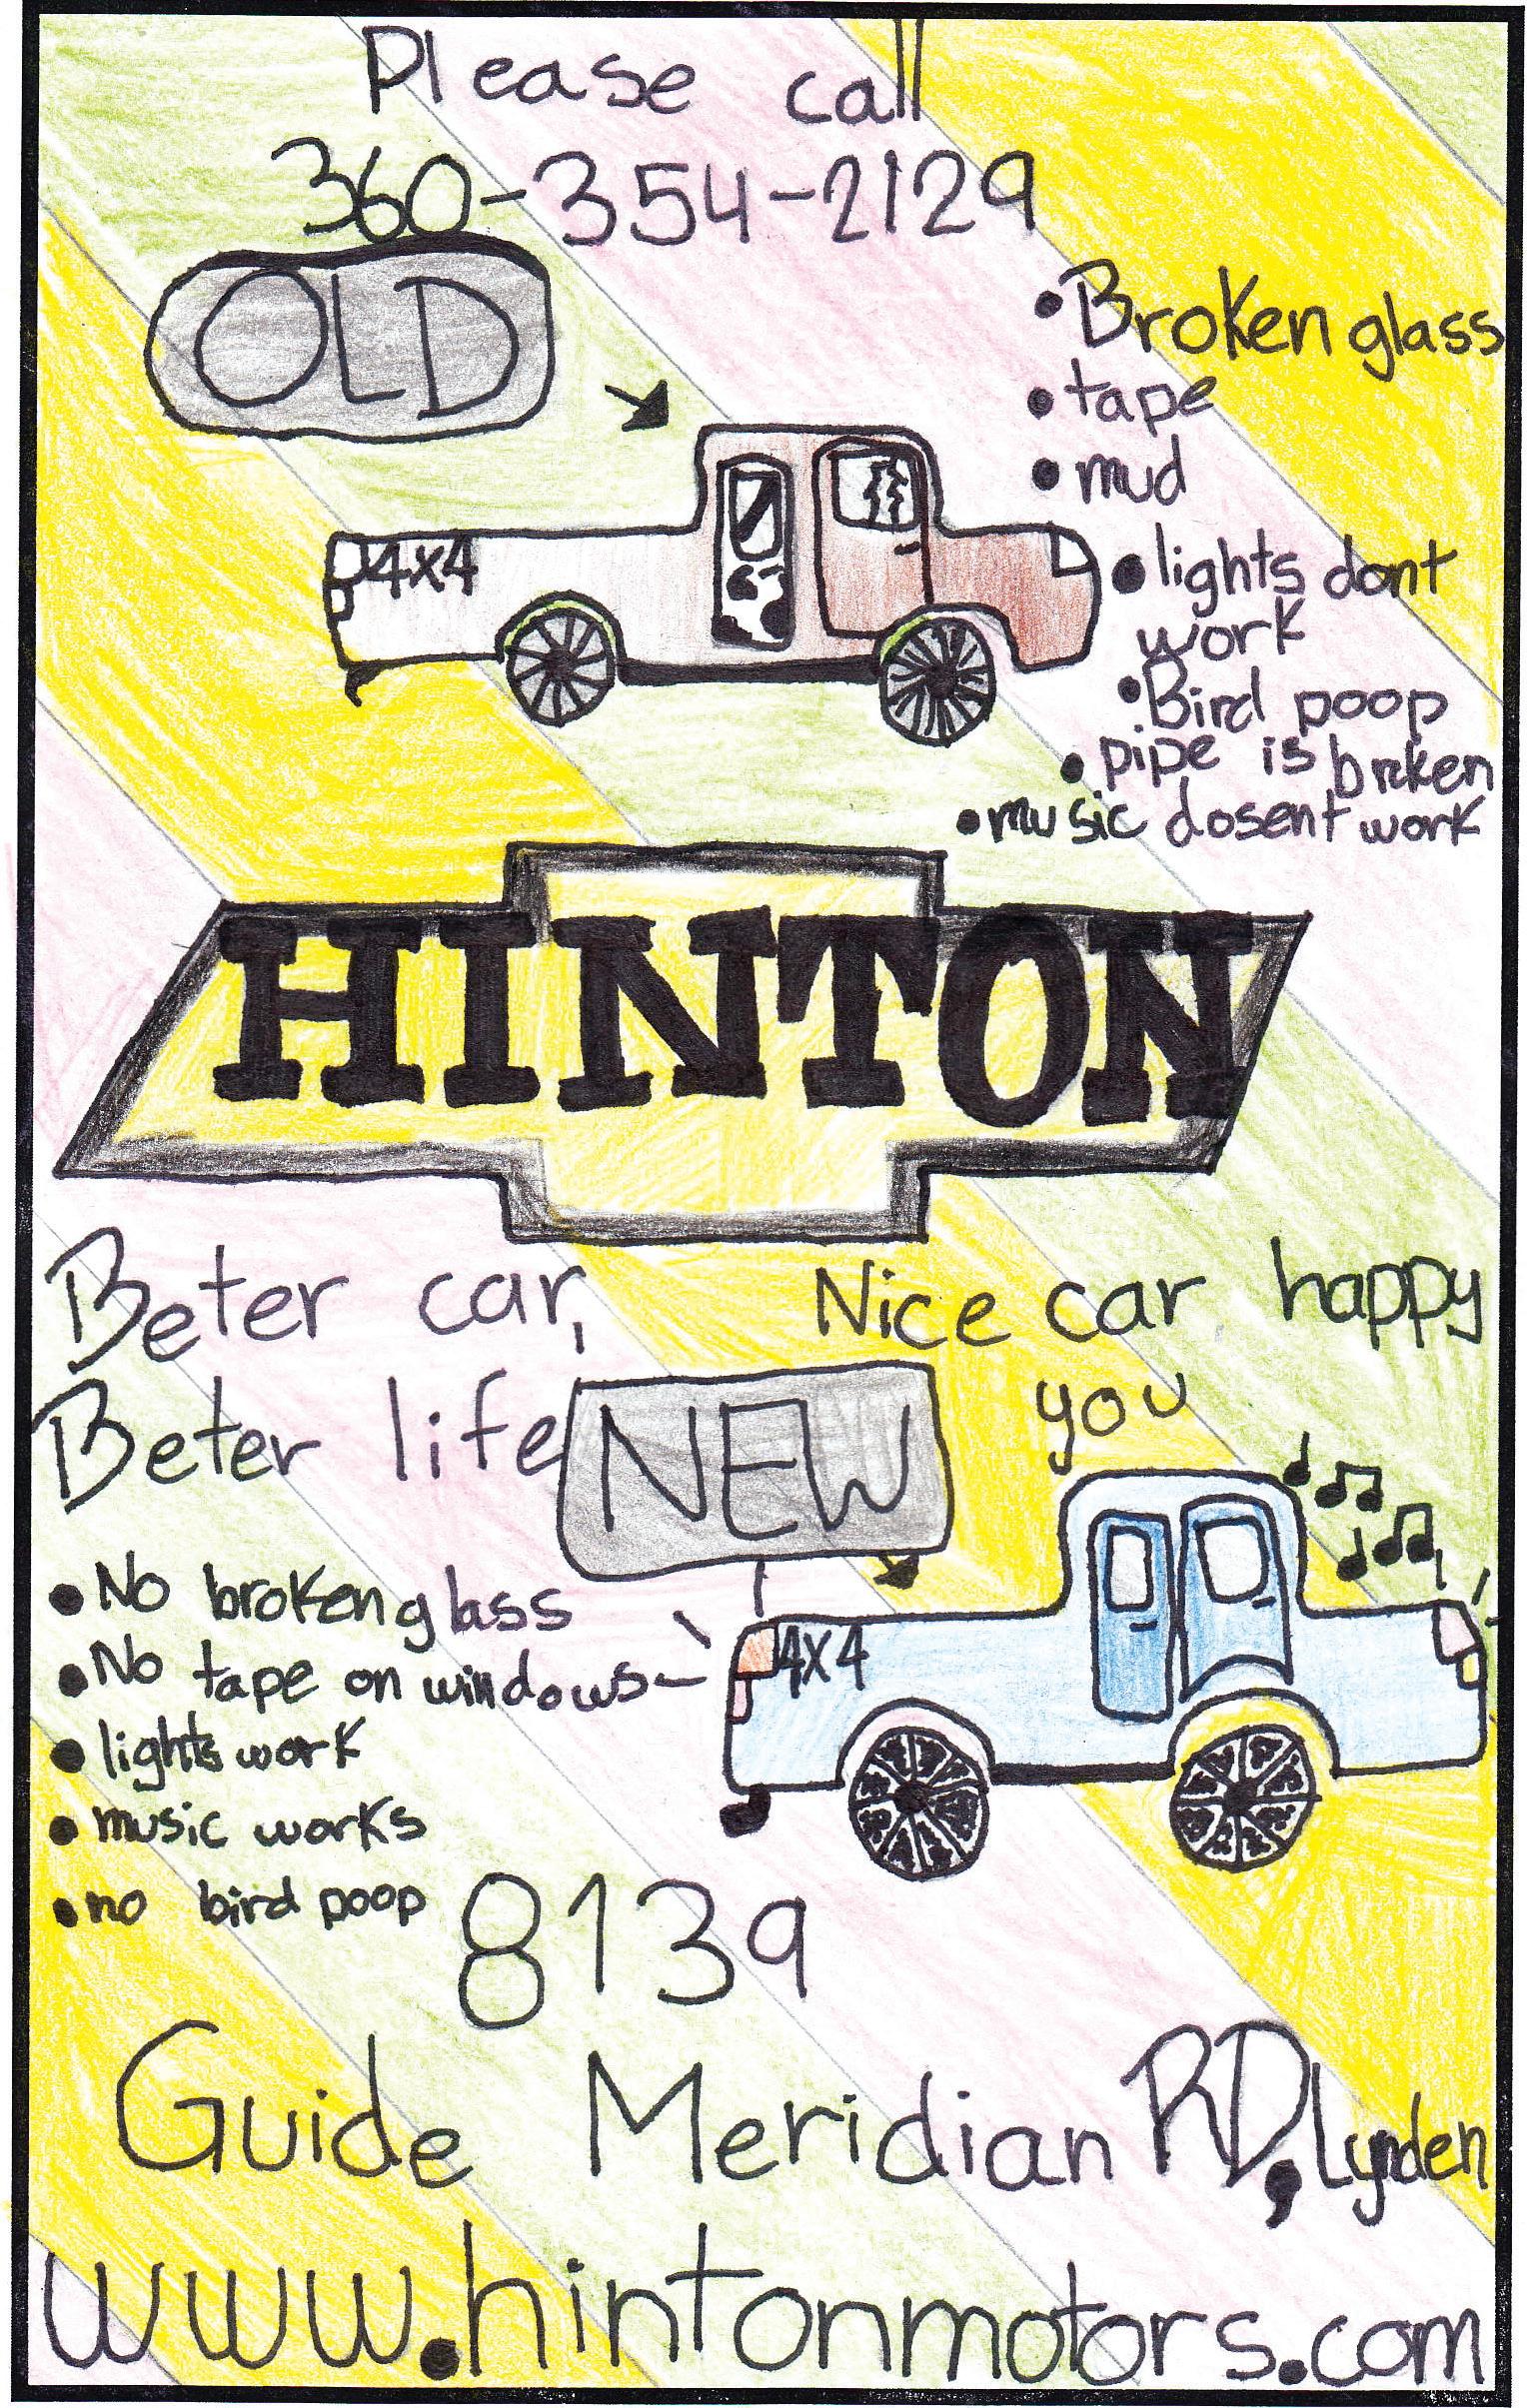 Please call
360-354-2129
OLD
•Broken glass
•tape
•mud
•lights dont
work
•Bird poop
•pipe is broken
•music dosent work
4x4
HINTON
Beter car,
Beter life
Nice car happy
you
NEW
•No broken glass
•No tape on windows
•lights work
•music works
•no bird poop
4x4
8139
Guide Meridian RD, Lynden
www.hintonmotors.com